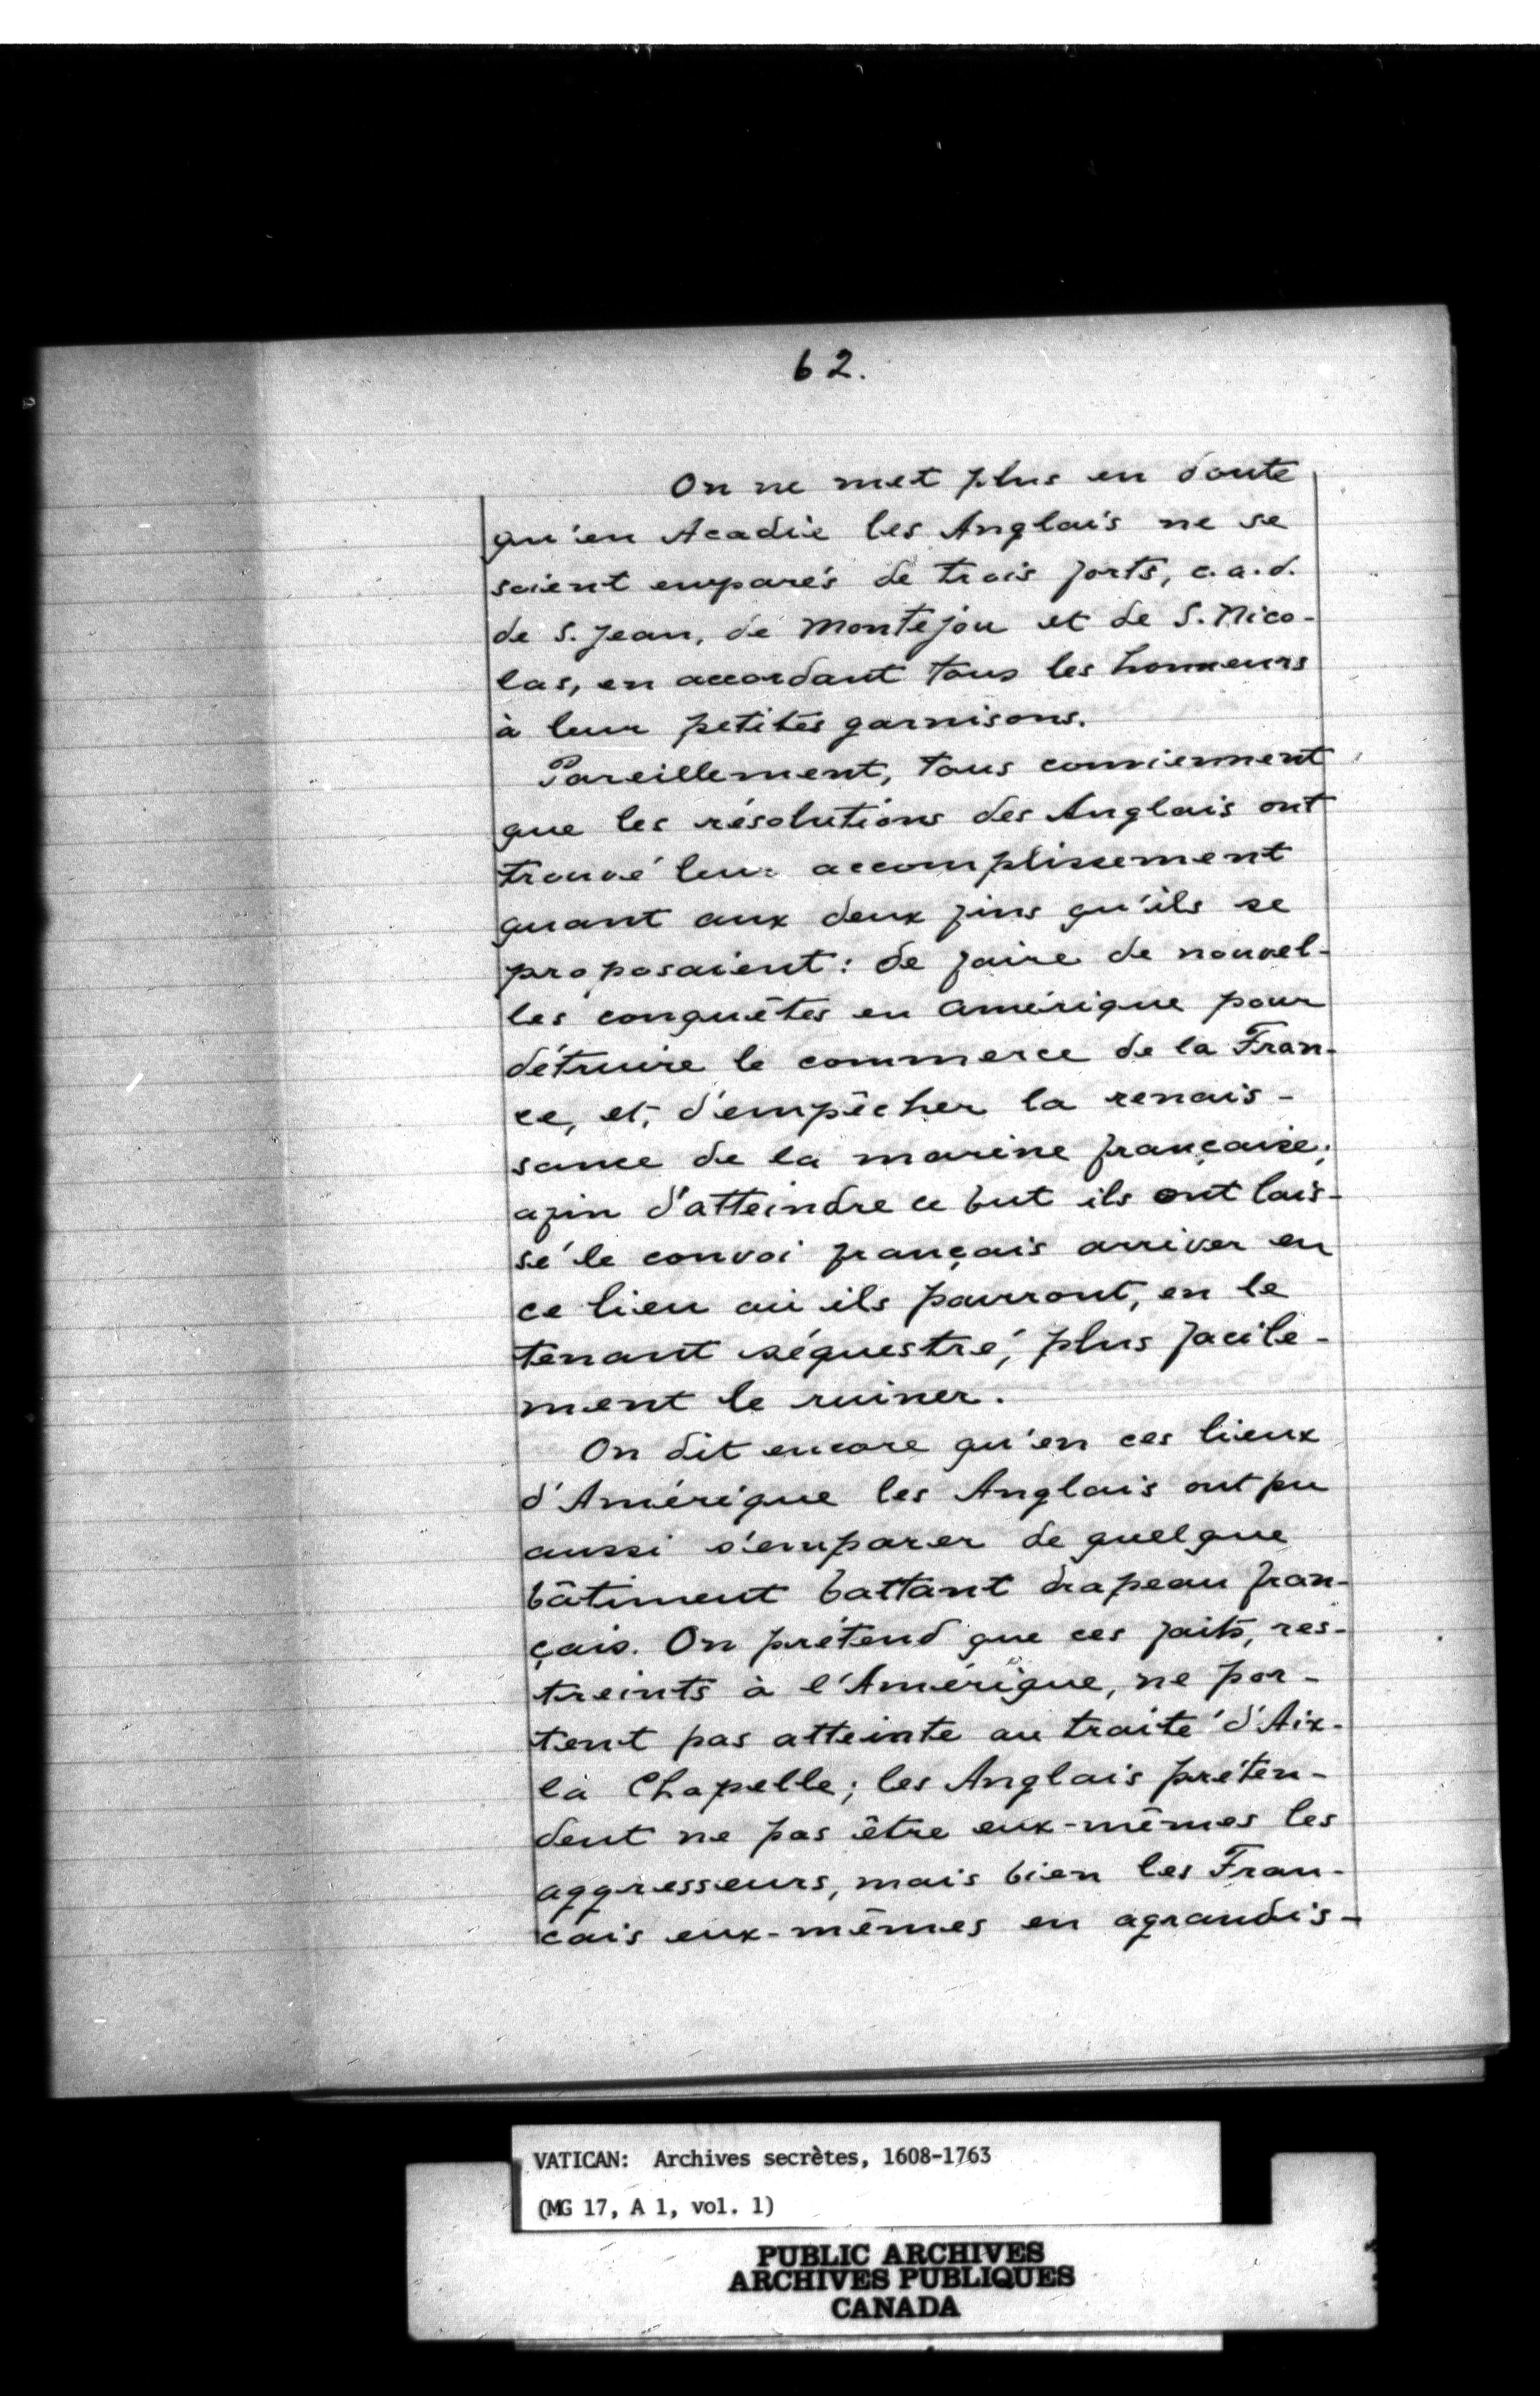 62.
On ne met plus en doute
qu'en Acadie les Anglais ne se
soient emparés de trois forts, c.a.d.
de S. Jean, de Montejou et de S. Nico-
las, en accordant tous les honneurs
à leur petites garnisons.
Pareillement, tous conviennent
que les résolutions des Anglais ont
trouvé leur accomplissement
quant aux deux fins qu'ils se
proposaient: de faire de nouvel-
les conquêtes en Amérique pour
détruire le commerce de la Fran-
ce, et, d'empêcher la renais-
sance de la marine française;
afin d'atteindre ce but ils ont lais-
sé le convoi français arriver en
ce lieu où ils pourront, en le
tenant séquestré, plus facile-
ment le ruiner.
On dit encore qu'en ces lieux
d'Amérique les Anglais ont pu
aussi s'emparer de quelque
bâtiment battant drapeau fran-
çais. On prétend que ces faits, res-
treints à l'Amérique, ne por-
tent pas atteinte au traité d'Aix-
la Chapelle; les Anglais préten-
dent ne pas être eux-mêmes les
aggresseurs, mais bien les Fran-
çais eux-mêmes en agrandis-
VATICAN: Archives secrètes, 1608-1763
(MG 17, A 1, vol. 1)
PUBLIC ARCHIVES
ARCHIVES PUBLIQUES
CANADA